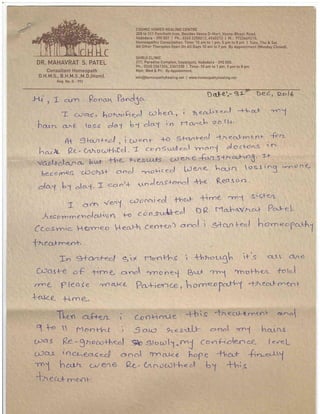 COSMIC HOMEO HEALING CENTER
DR. MAHAVRAT S. PATEL
Consultant Homeopath
D.H.M.S., B.H.M.S., M.D.(Hom).
Date:- 31st Dec, 2016
Hi, I am Ronan Pandya
I was horrified when, i realized that my
hair are lose day by day in March 2014.
At Started, i went to Started treatment for
hair Re-Growthed. I consulted many doctors in
vadodara but the results were frustrating. It
becomes worst and noticed were hair lossing more
day by day. I can't understand the Reason.
I am very worried that time my sister
recommendation to consulted DR Mahavrat Patel
(Cosmic Homeo Heath Center) and i started homeopathy
treatment.
In Started Six months i through it's all are
waste of time and money But my mother told
me Please make Patience, homeopathy treatment
take time.
Then after i continue this treatment and
9 to 11 Months i Saw Result and my hairs
was Re-growthed slowly, my confidence level
was increased and make hope that finally
my hair were Re-Growthed by this
treatment